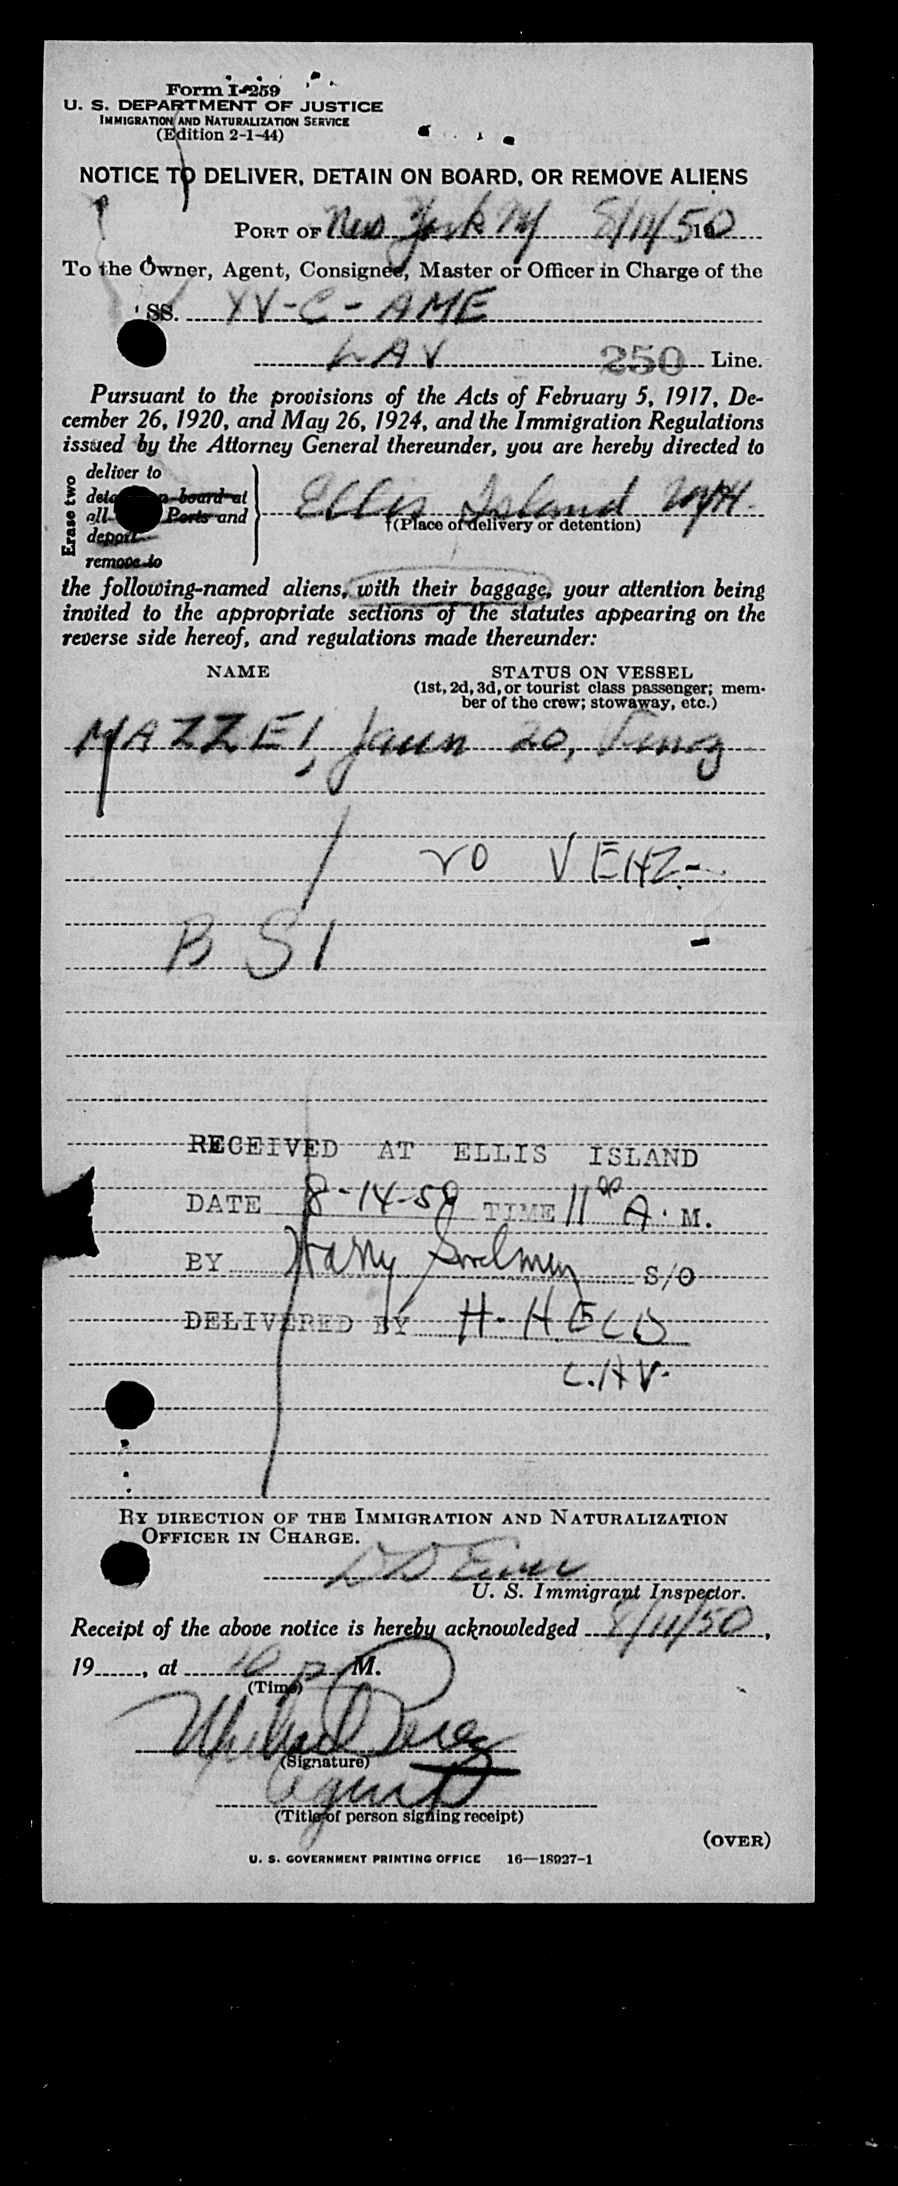 Form I-259
U. S. DEPARTMENT OF JUSTICE
IMMIGRATION AND NATURALIZATION SERVICE
(Edition 2-1-44)
NOTICE TO DELIVER, DETAIN ON BOARD, OR REMOVE ALIENS
PORT OF New York NY 8/11/50 19
To the Owner, Agent, Consignee, Master or Officer in Charge of the
SS. YV-C-AME
LAV 250 Line.
Pursuant to the provisions of the Acts of February 5, 1917, De-
cember 26, 1920, and May 26, 1924, and the Immigration Regulations
issued by the Attorney General thereunder, you are hereby directed to
Erase two
deliver to
board at
all Ports and
deport
remove to
Ellis Island NYH.
(Place of delivery or detention)
the following-named aliens, with their baggage, your attention being
invited to the appropriate sections of the statutes appearing on the
reverse side hereof, and regulations made thereunder:
NAME STATUS ON VESSEL
(1st, 2d, 3d, or tourist class passenger; mem-
ber of the crew; stowaway, etc.)
MAZZEI, Jaun 20, Venz
20 VENZ-
BSI
RECEIVED AT ELLIS ISLAND
DATE 8-14-50 TIME 11 00 A. M.
BY Harry S/O
DELIVERED BY H. HELD
L.A.V.
BY DIRECTION OF THE IMMIGRATION AND NATURALIZATION
OFFICER IN CHARGE.
U. S. Immigrant Inspector.
Receipt of the above notice is hereby acknowledged 8/11/50,
19, at 10 P M.
(Time)
Michael Perez
(Signature)
Agent
(Title of person signing receipt)
(OVER)
U. S. GOVERNMENT PRINTING OFFICE 16—18927-1